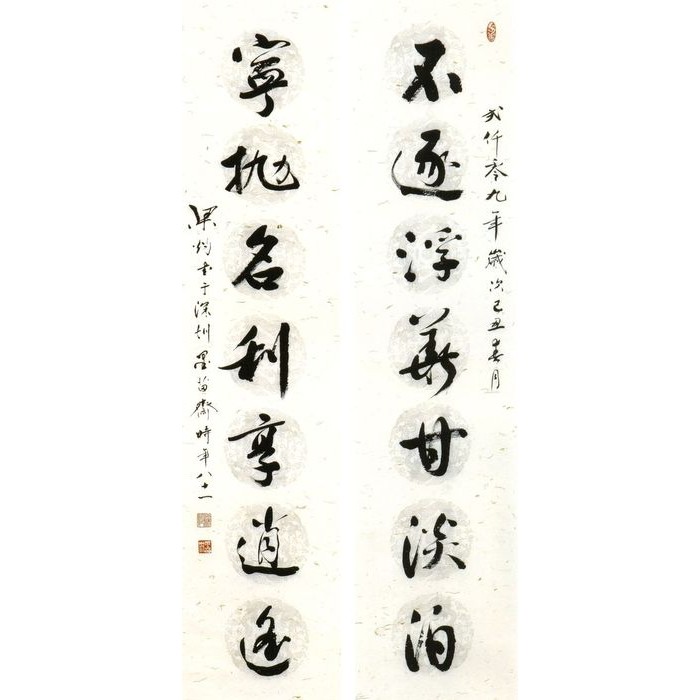 不逐浮華甘淡泊
弍仟零九年歲次己丑春月
寧拋名利享逍遙
梁灼書于深圳墨苗齋時年八十一